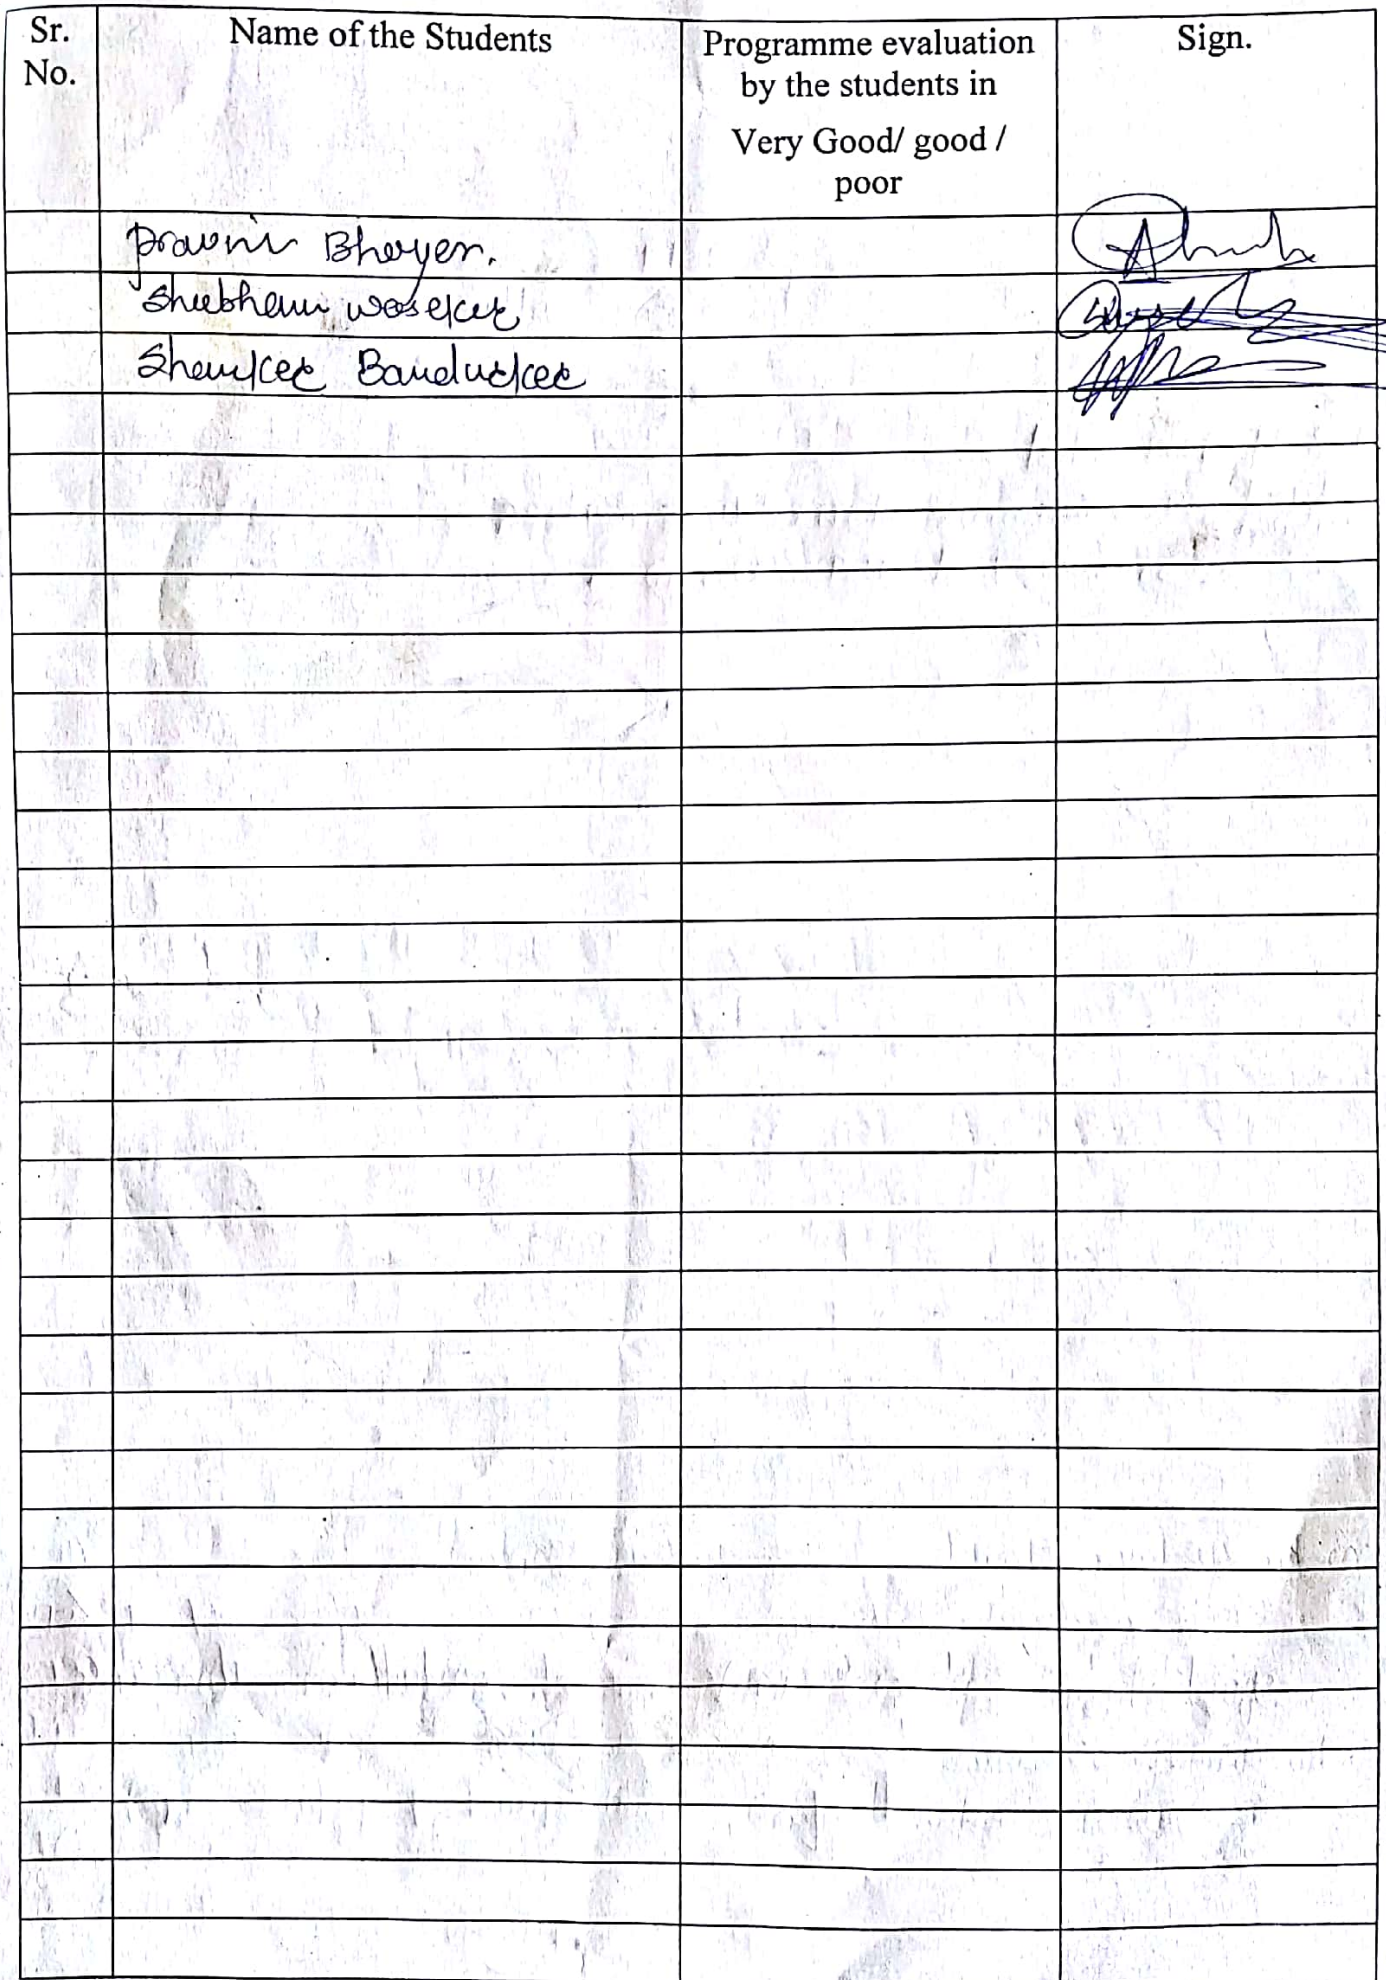 Sr.
No.
Name of the Students
Programme evaluation
by the students in
Very Good/ good /
poor
Sign.
Pravin Bhoyer.
Shubham wasekar
Shankar Bandurkar